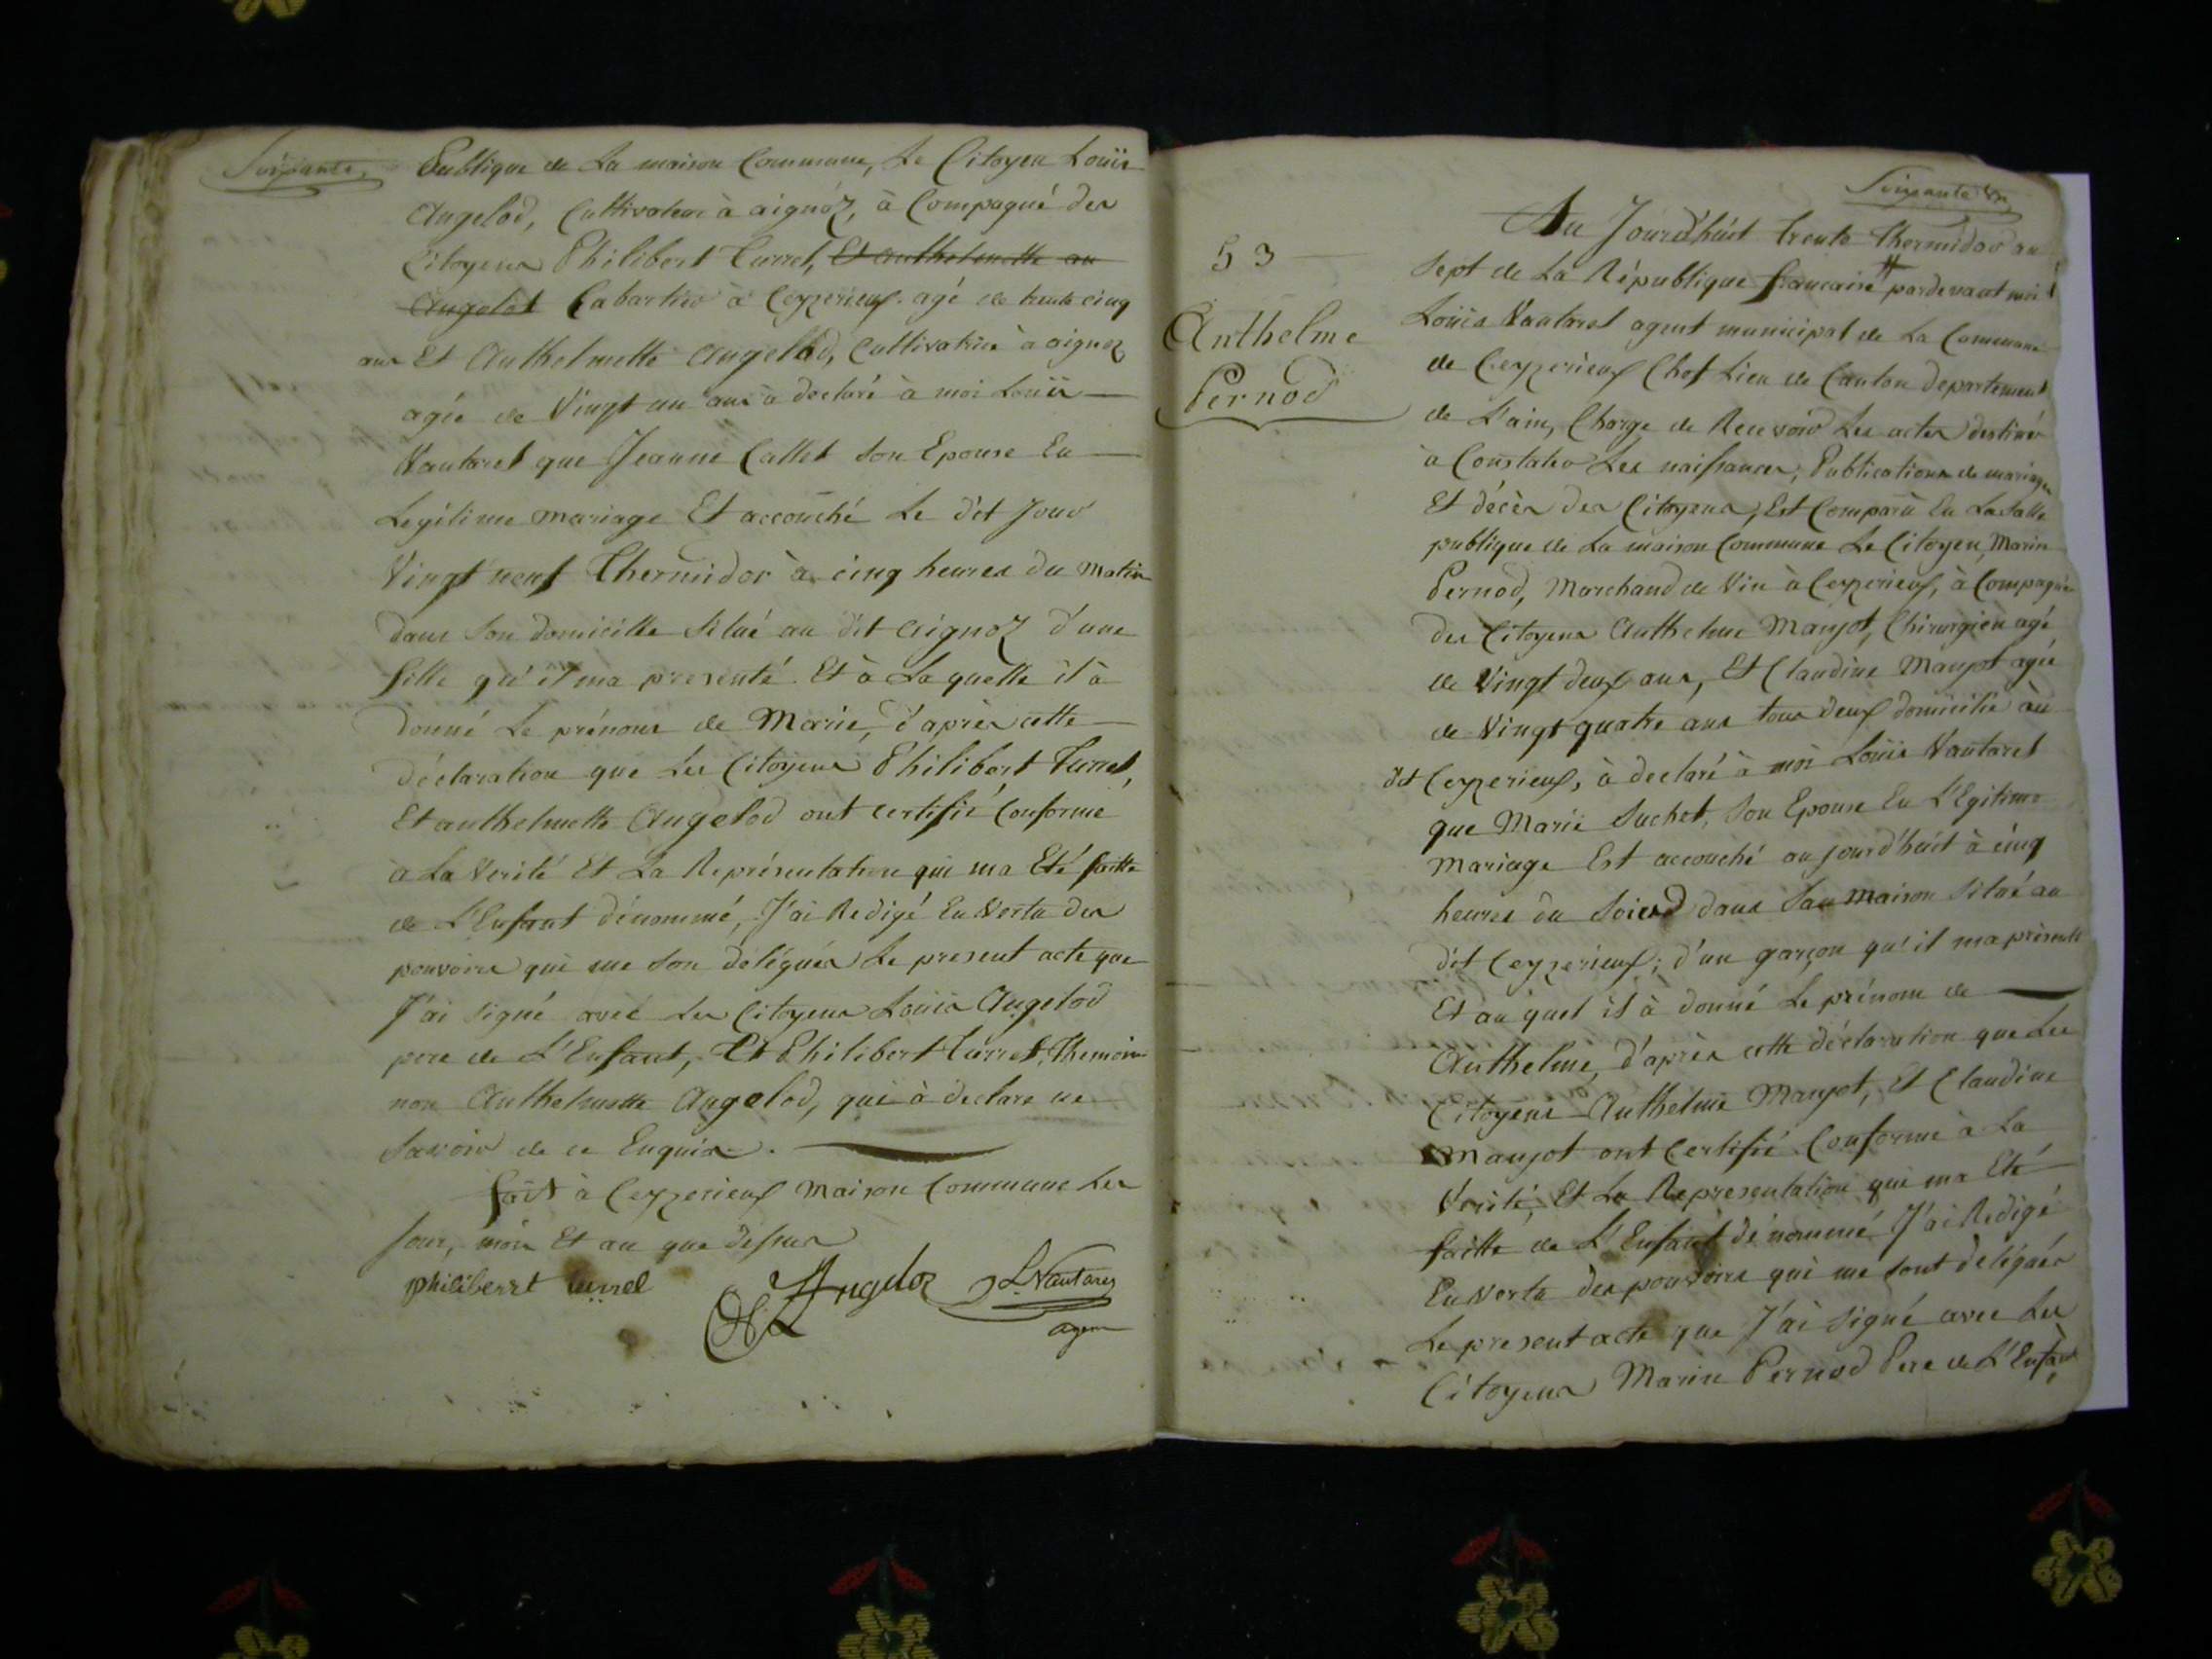 Soixante
Publique de La maison Commune, Le Citoyen Louis
Angelod, Cultivateur à aignoz, à Compagné des
Citoyens Philibert Turrel, Et anthelmette an
Angelot Cabartier à Ceyzerieux agé de trente cinq
ans Et Anthelmette Angelod, Cultivatrice à aignoz
agée de Vingt un ans à declaré à moi Louis
Vautaret que Jeanne Callet Son Epouse En
Legitime mariage Et accouché Le dit Jour
Vingt neuf Thermidor à cinq heures du matin
dans Son domicille Situé au dit aignoz d'une
fille qu'il ma presenté. Et à Laquelle il à
donné Le prénom de Marie, d'après cette
déclaration que Les Citoyens Philibert Turrel,
Et anthelmette Angelod ont certifié Conforme
à La Verité Et La Représentation qui ma Eté faitte
de L'Enfant dénommé, J'ai Redigé En Vertu des
pouvoirs qui me Son délégués Le present acte que
J'ai Signé avec Les Citoyens Louis Angelod
pere de L'Enfant, Et Philibert Turrel, Themoins
non Anthelmette Angelod, qui à declare ne
Savoir de ce Enquis.
fait à Ceyzerieux Maison Commune Les
Jour, mois Et an que dessus
philiberrt turrel
Angeloz
L Vautaret
agent
Soixante un
53
Anthelme
Pernod
Au Jourd'huit trente Thermidor an
Sept de La République francaise # pardevant moi
Louis Vautaret agent municipal de La Commune
de Ceyzerieux Chef Lieu de Canton departement
de L'ain, Charge de Recevoir Les actes destinés
à Constater Les naissances, Publications de mariages
Et décès des Citoyens, Est Comparu En La Salle
publique de La maison Commune Le Citoyen Marin
Pernod, Marchand de Vin à Ceyzerieux, à Compagné
des Citoyens Anthelme Maujot, Chirurgien agé
de Vingt deux ans, Et Claudine Maujot agée
de Vingt quatre ans tous deux domicilié au
dit Ceyzerieux, à declaré à moi Louis Vautaret
que Marie Suchet, Son Epouse En L'Egitime
Mariage Est accouché au jourd'huit à cinq
heures du Soierd dans Sau Maison Situé au
dit Ceyzerieux; d'un garçon qu'il ma présenté
Et au quel il à donné Le prénom de
Anthelme, d'après cette déclaration que Les
Citoyens Anthelme Maujot, Et Claudine
Maujot ont Certifié Conforme à La
Verité, Et La Representation qui ma Eté
faitte de L'Enfant dénommé J'ai Redigé
En Vertu des pouvoirs qui me Sont délégués
Le present acte que J'ai Signé avec Les
Citoyens Marin Pernod Pere de L'Enfant